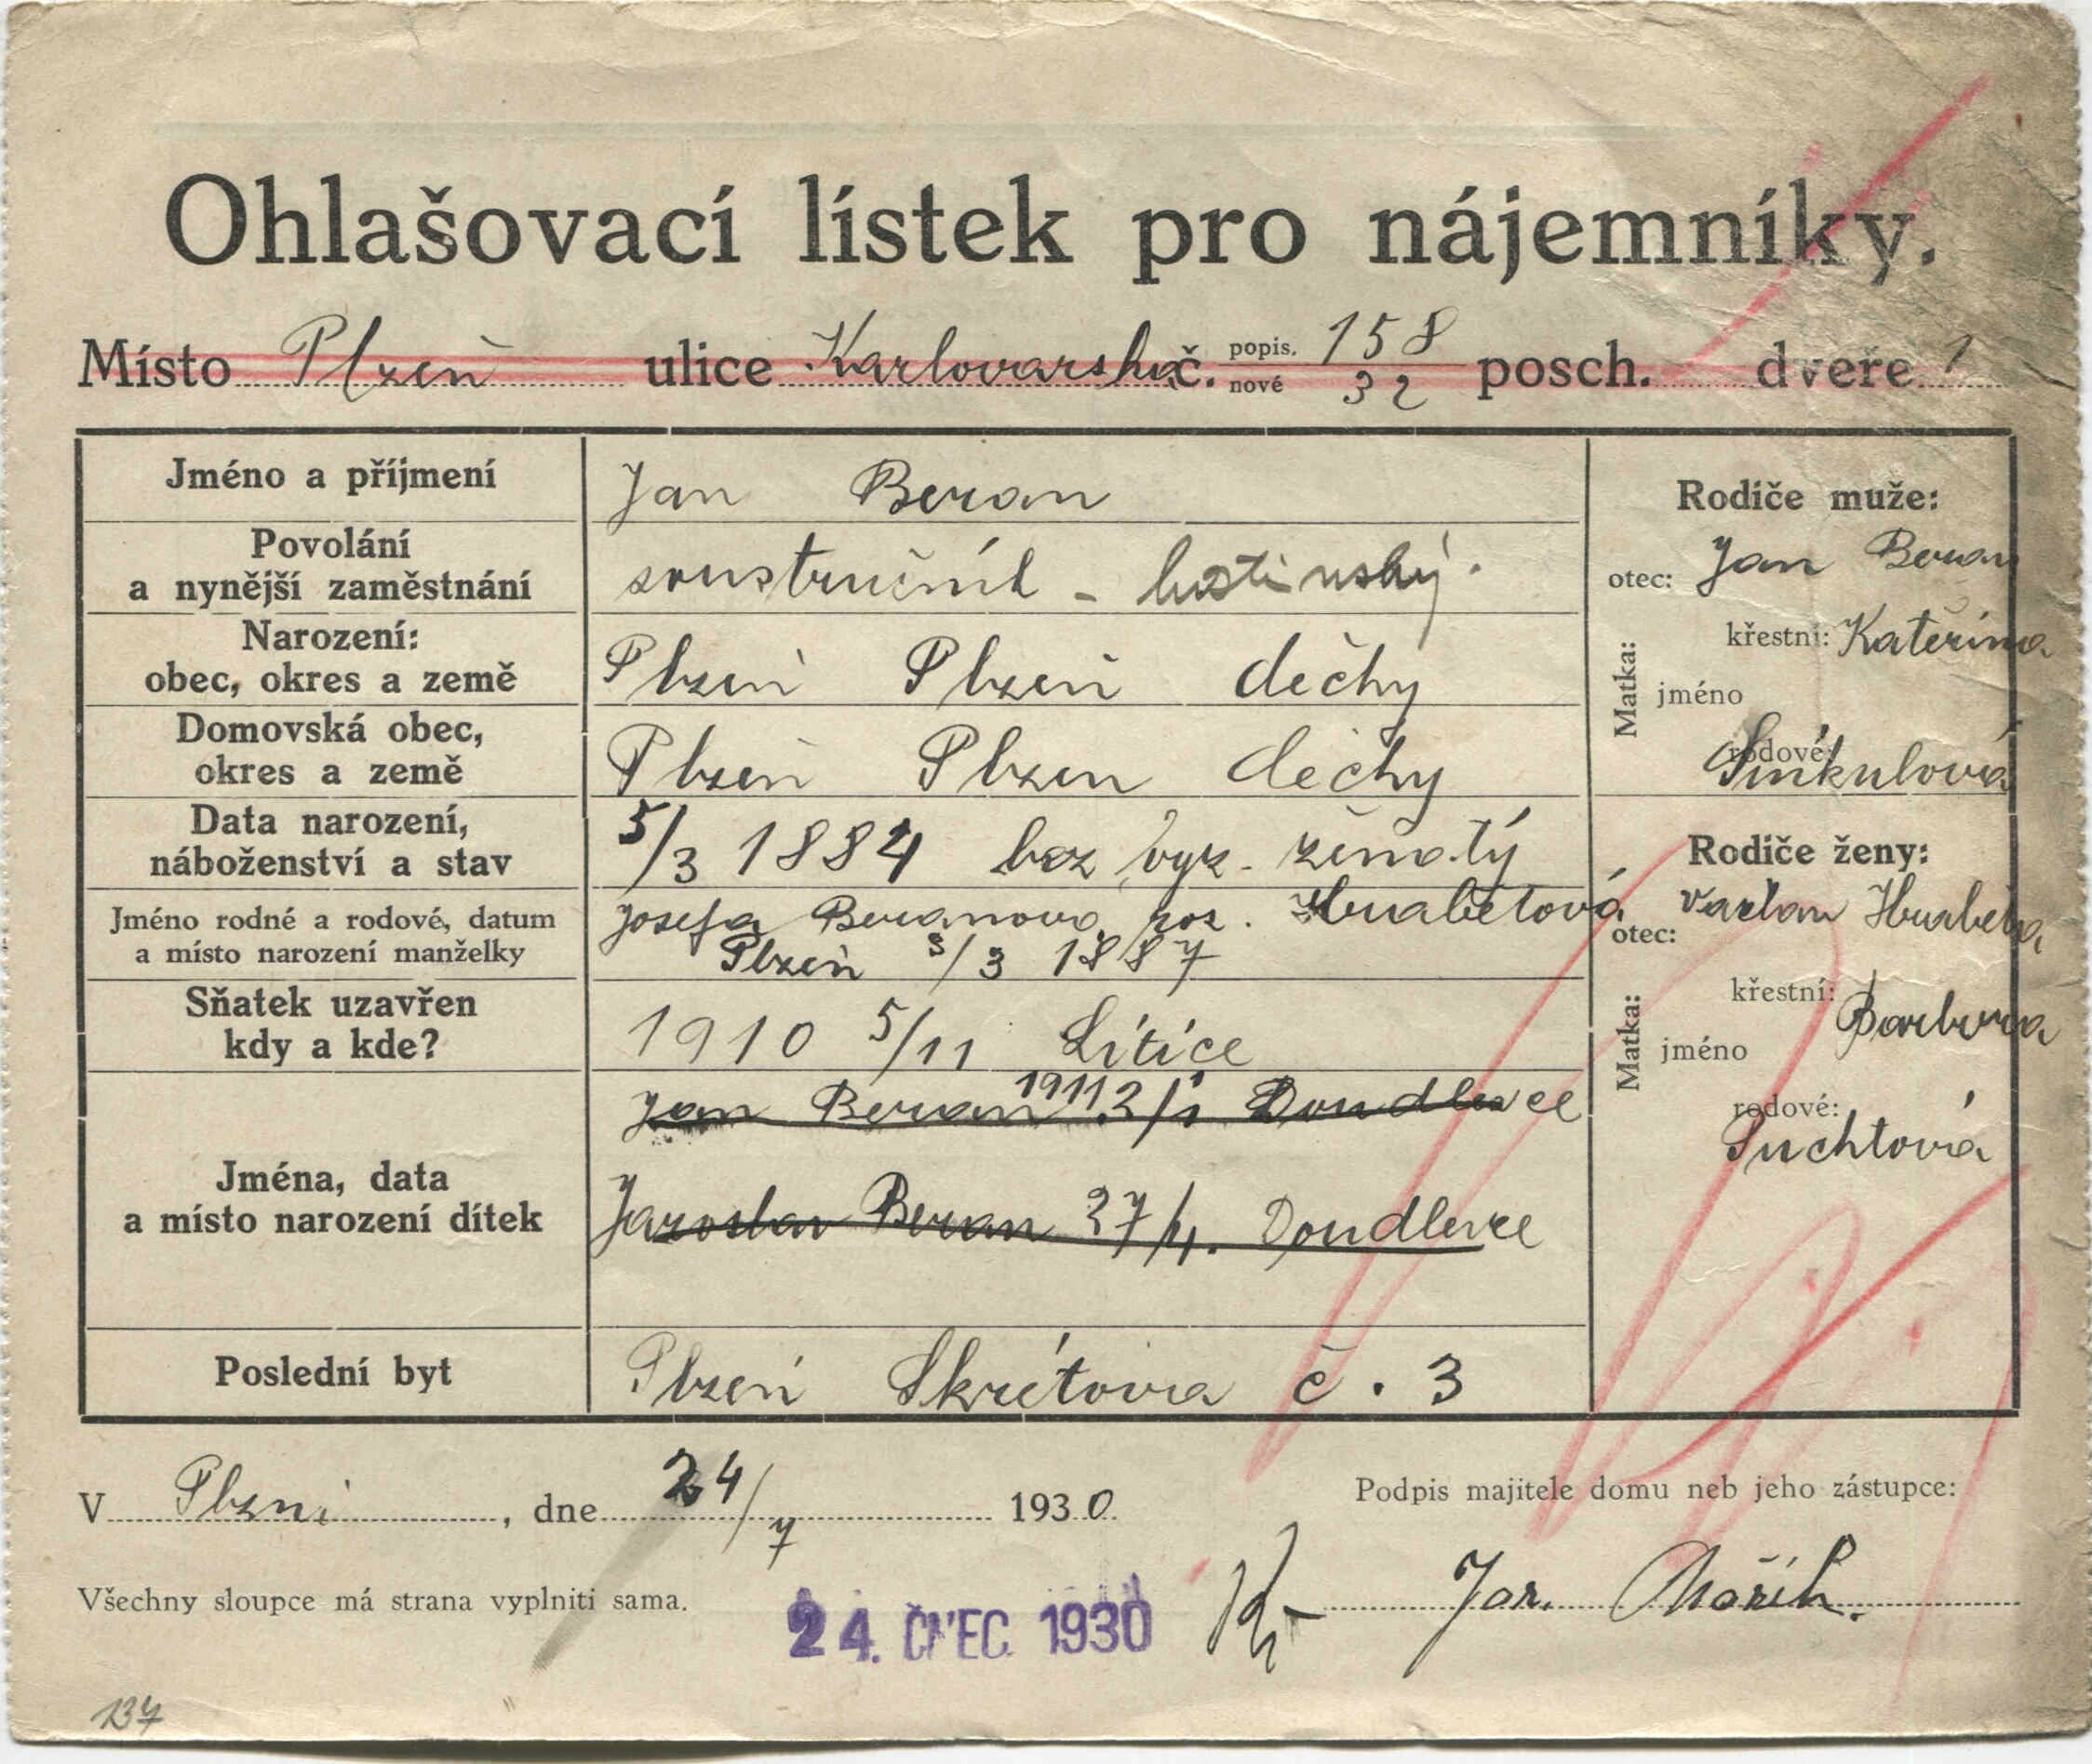 Ohlašovací lístek pro nájemníky.
Místo Plzeň ulice Karlovarská č. popis. 158 nové 32 posch. dveře 1
Jméno a příjmení Jan Beran
Povolání a nynější zaměstnání soustružník -
Narození: obec, okres a země Plzeň Plzeň čechy
Domovská obec, okres a země Plzeň Plzen čechy
Data narození, náboženství a stav 5/3 1884 bez vyz. ženatý
Jméno rodné a rodové, datum a místo narození manželky Josefa Beranova roz. Hrabětová
Plzeň 3/3 1887
Sňatek uzavřen kdy a kde? 1910 5/11 Litice
Jména, data a místo narození dítek
Jan Beran 1911 2/1 Doudlevce
Jaroslav Beran 27/4. Doudlevce
Poslední byt Plzeň Skrétova č. 3
Rodiče muže:
otec: Jan Beran
Matka: jméno křestní: Kateřina
rodové: Sinkulová
Rodiče ženy:
otec: Vaclav Hraběta
Matka: jméno křestní: Barbora
rodové: Suchtová
V Plzni, dne 24/7 1930
Podpis majitele domu neb jeho zástupce:
Jar. Mařík.
Všechny sloupce má strana vyplniti sama.
24. ČNEC 1930
137